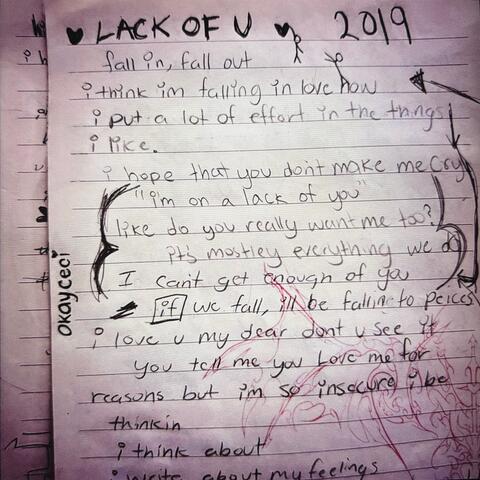 ♥ LACK OF U ♥ 2019
fall in, fall out
i think im falling in love now
i put a lot of effort in the things
i like.
i hope that you dont make me cry
"i'm on a lack of you"
like do you really want me too?
it's mostley everything we do
I can't get enough of you
if we fall, i'll be fallin to peices
i love u my dear dont u see it
you tell me you love me for
reasons but im so insecure i be
thinkin
i think about
i write about my feelings
okayceci